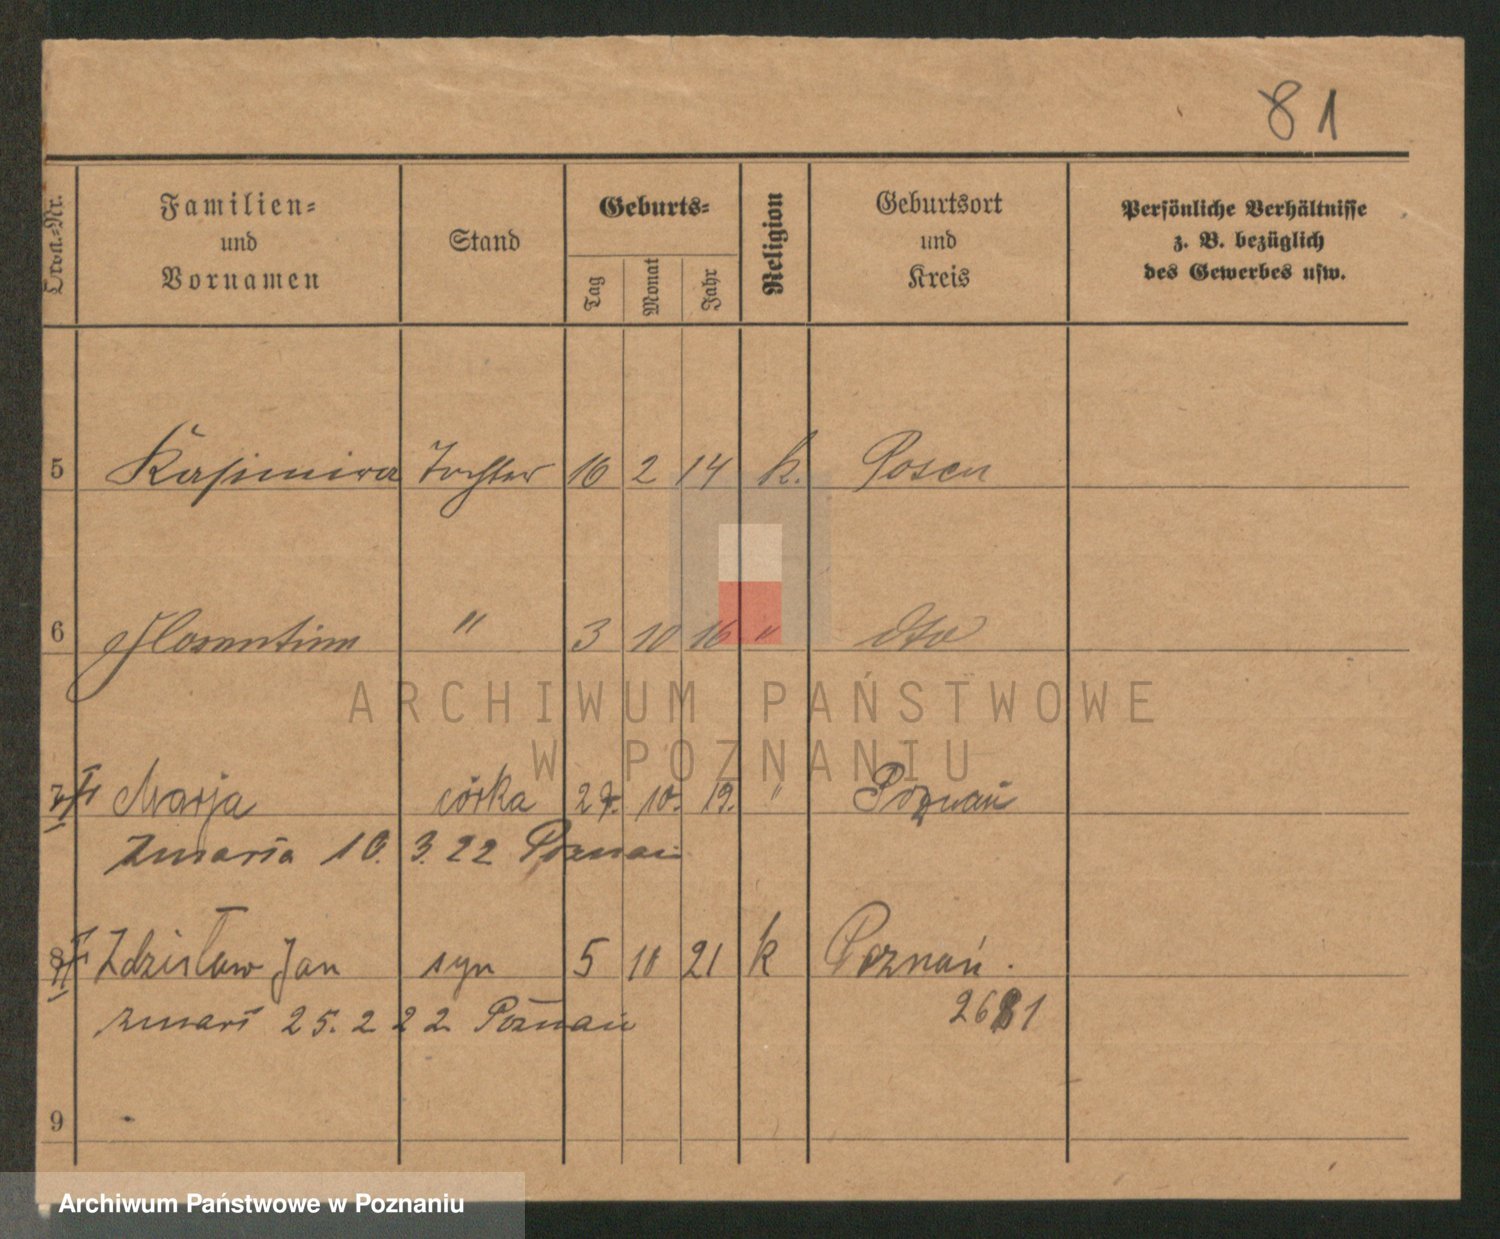 81
Lfd.-Nr.
Familien-
und
Vornamen
Stand
Geburts-
Tag
Monat
Jahr
Religion
Geburtsort
und
Kreis
Persönliche Verhältnisse
z. B. bezüglich
des Gewerbes usw.
5 Kasimira Tochter 16 2 14 k. Posen
6 Florentina " 3 10 16 " dto
ARCHIWUM PAŃSTWOWE
W POZNANIU
7 Marja córka 27. 10. 19. " Poznań
zmarła 10. 3. 22 Poznań
8 Zdzisław Jan syn 5 10 21 k Poznań.
zmarł 25. 2 22 Poznań
2681
9
Archiwum Państwowe w Poznaniu